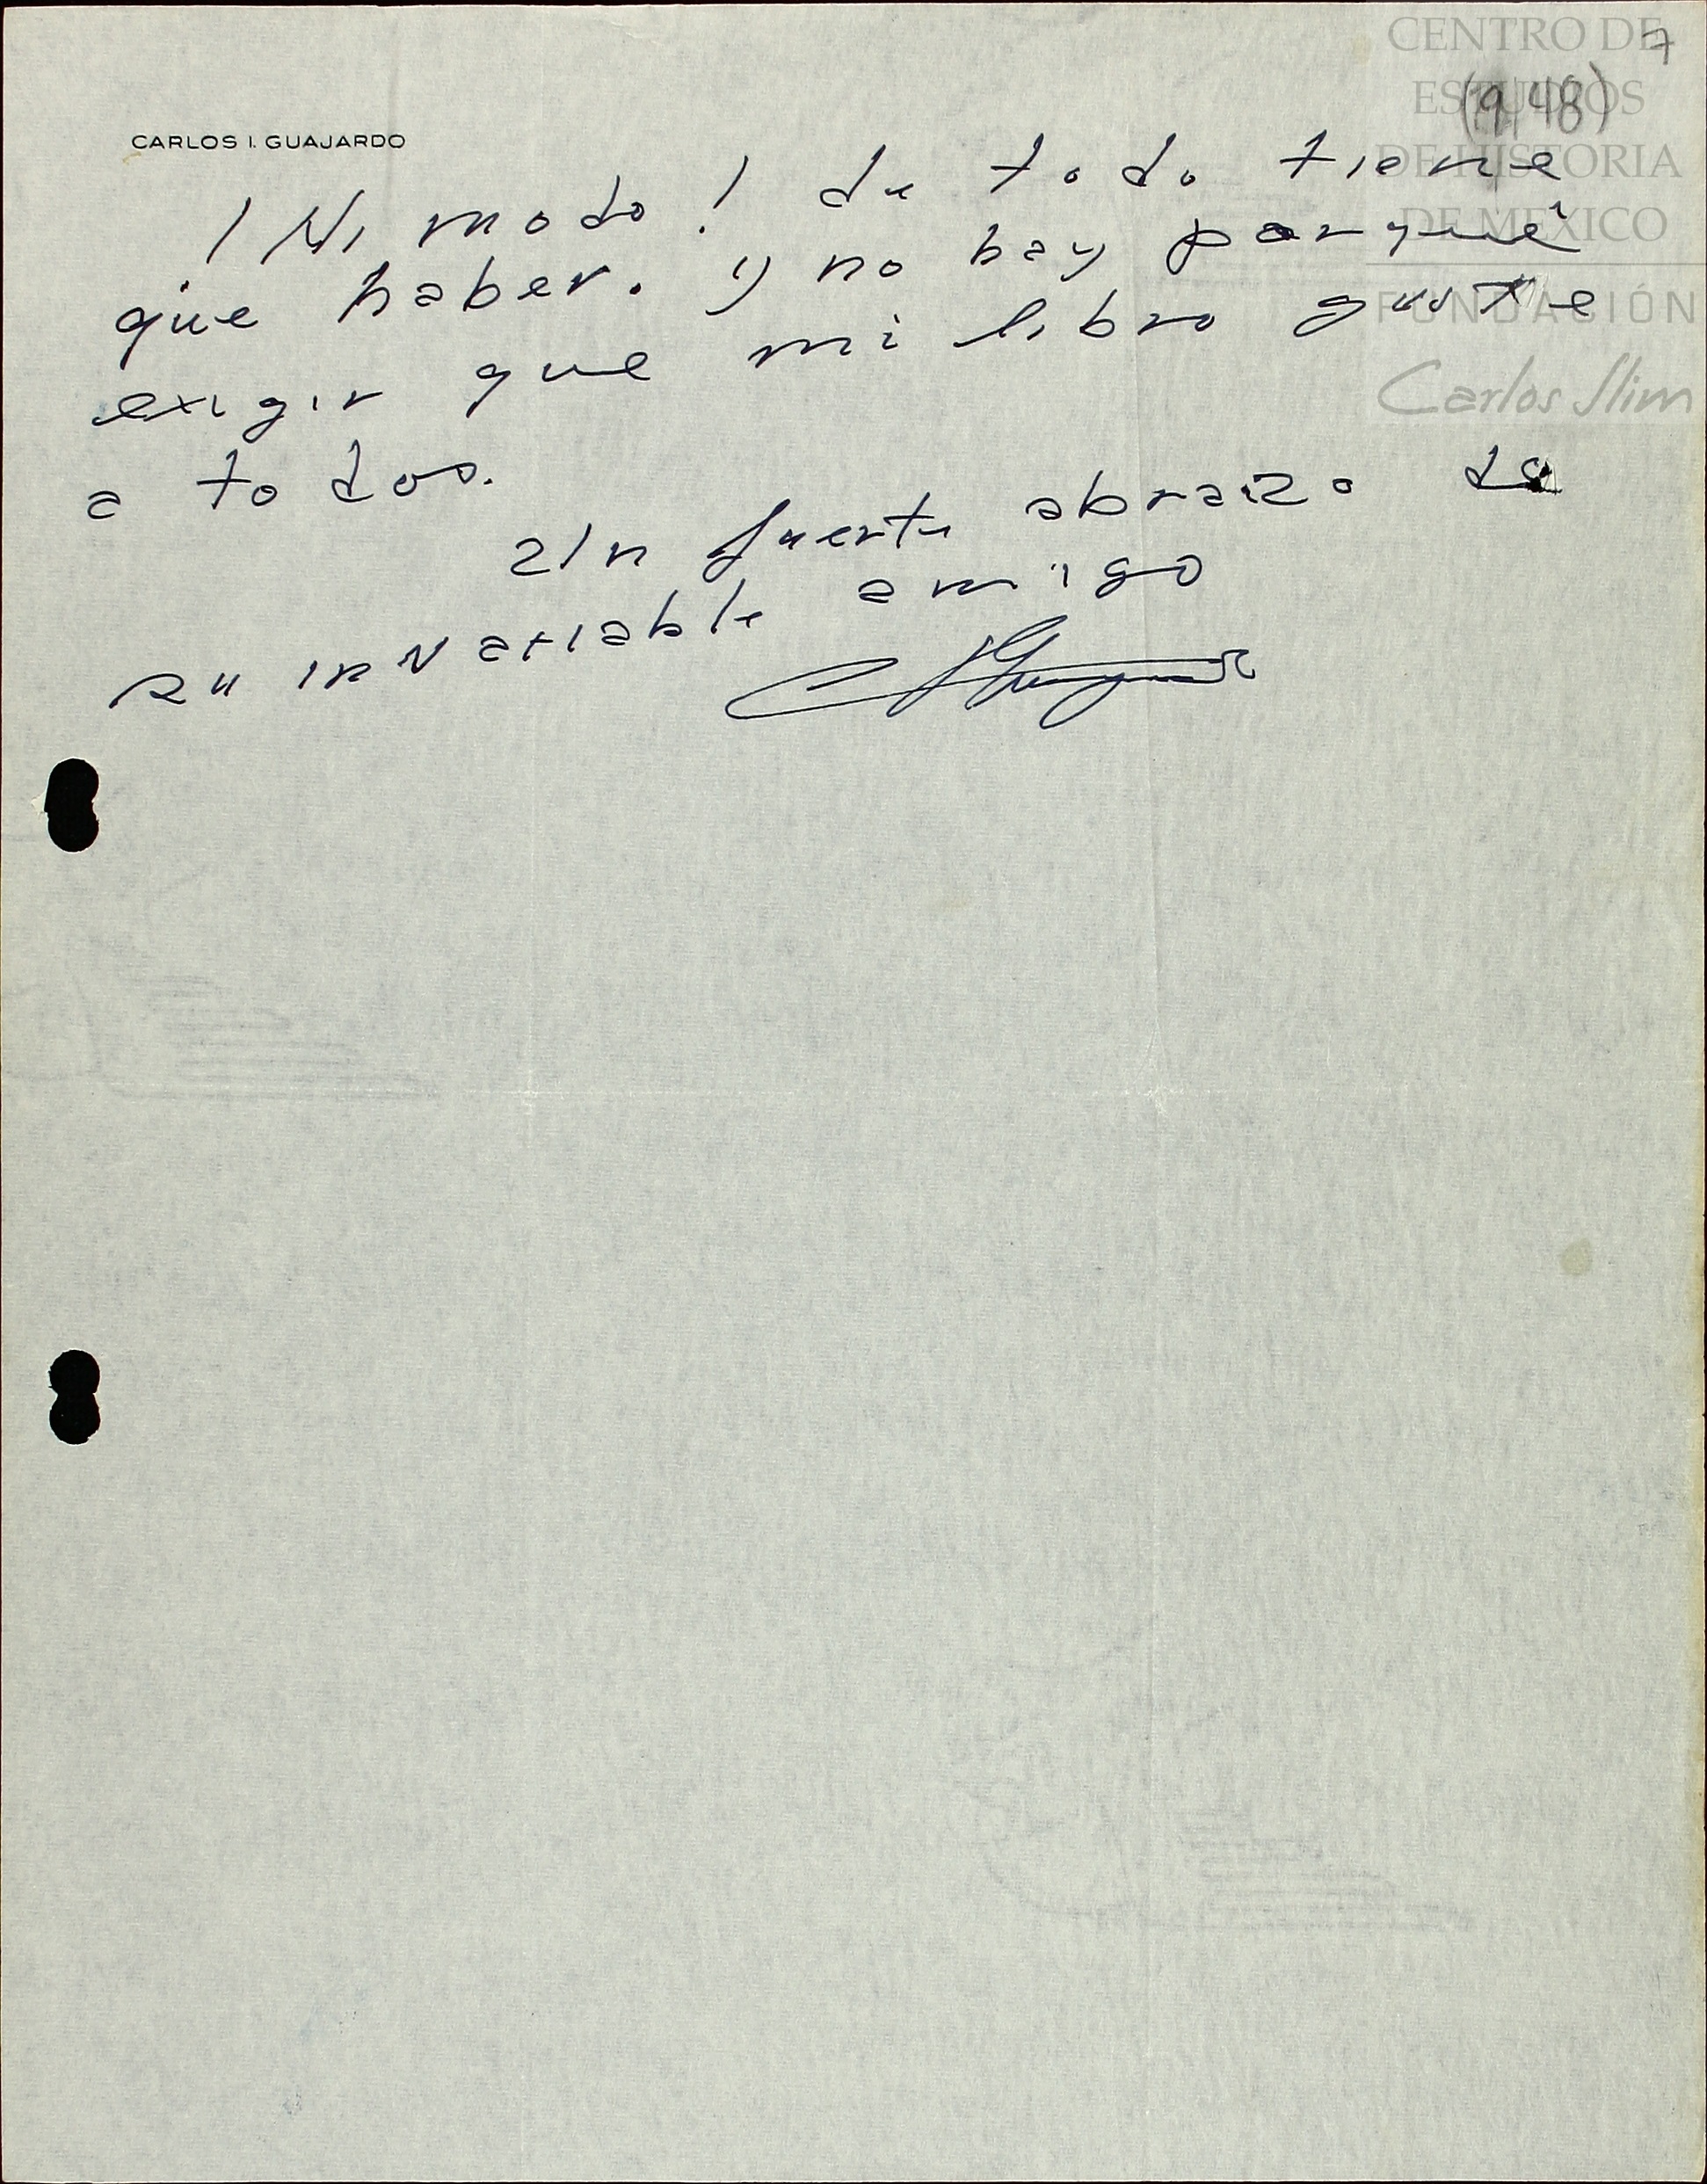 CENTRO DE
ESTUDIOS
DE HISTORIA
DE MEXICO
FUNDACIÓN
Carlos Slim
7
(948)
CARLOS I. GUAJARDO
¡Ni modo! de todo tiene
que haber. y no hay porqué
exigir que mi libro guste
a todos.
Un fuerte abrazo de
su invariable amigo